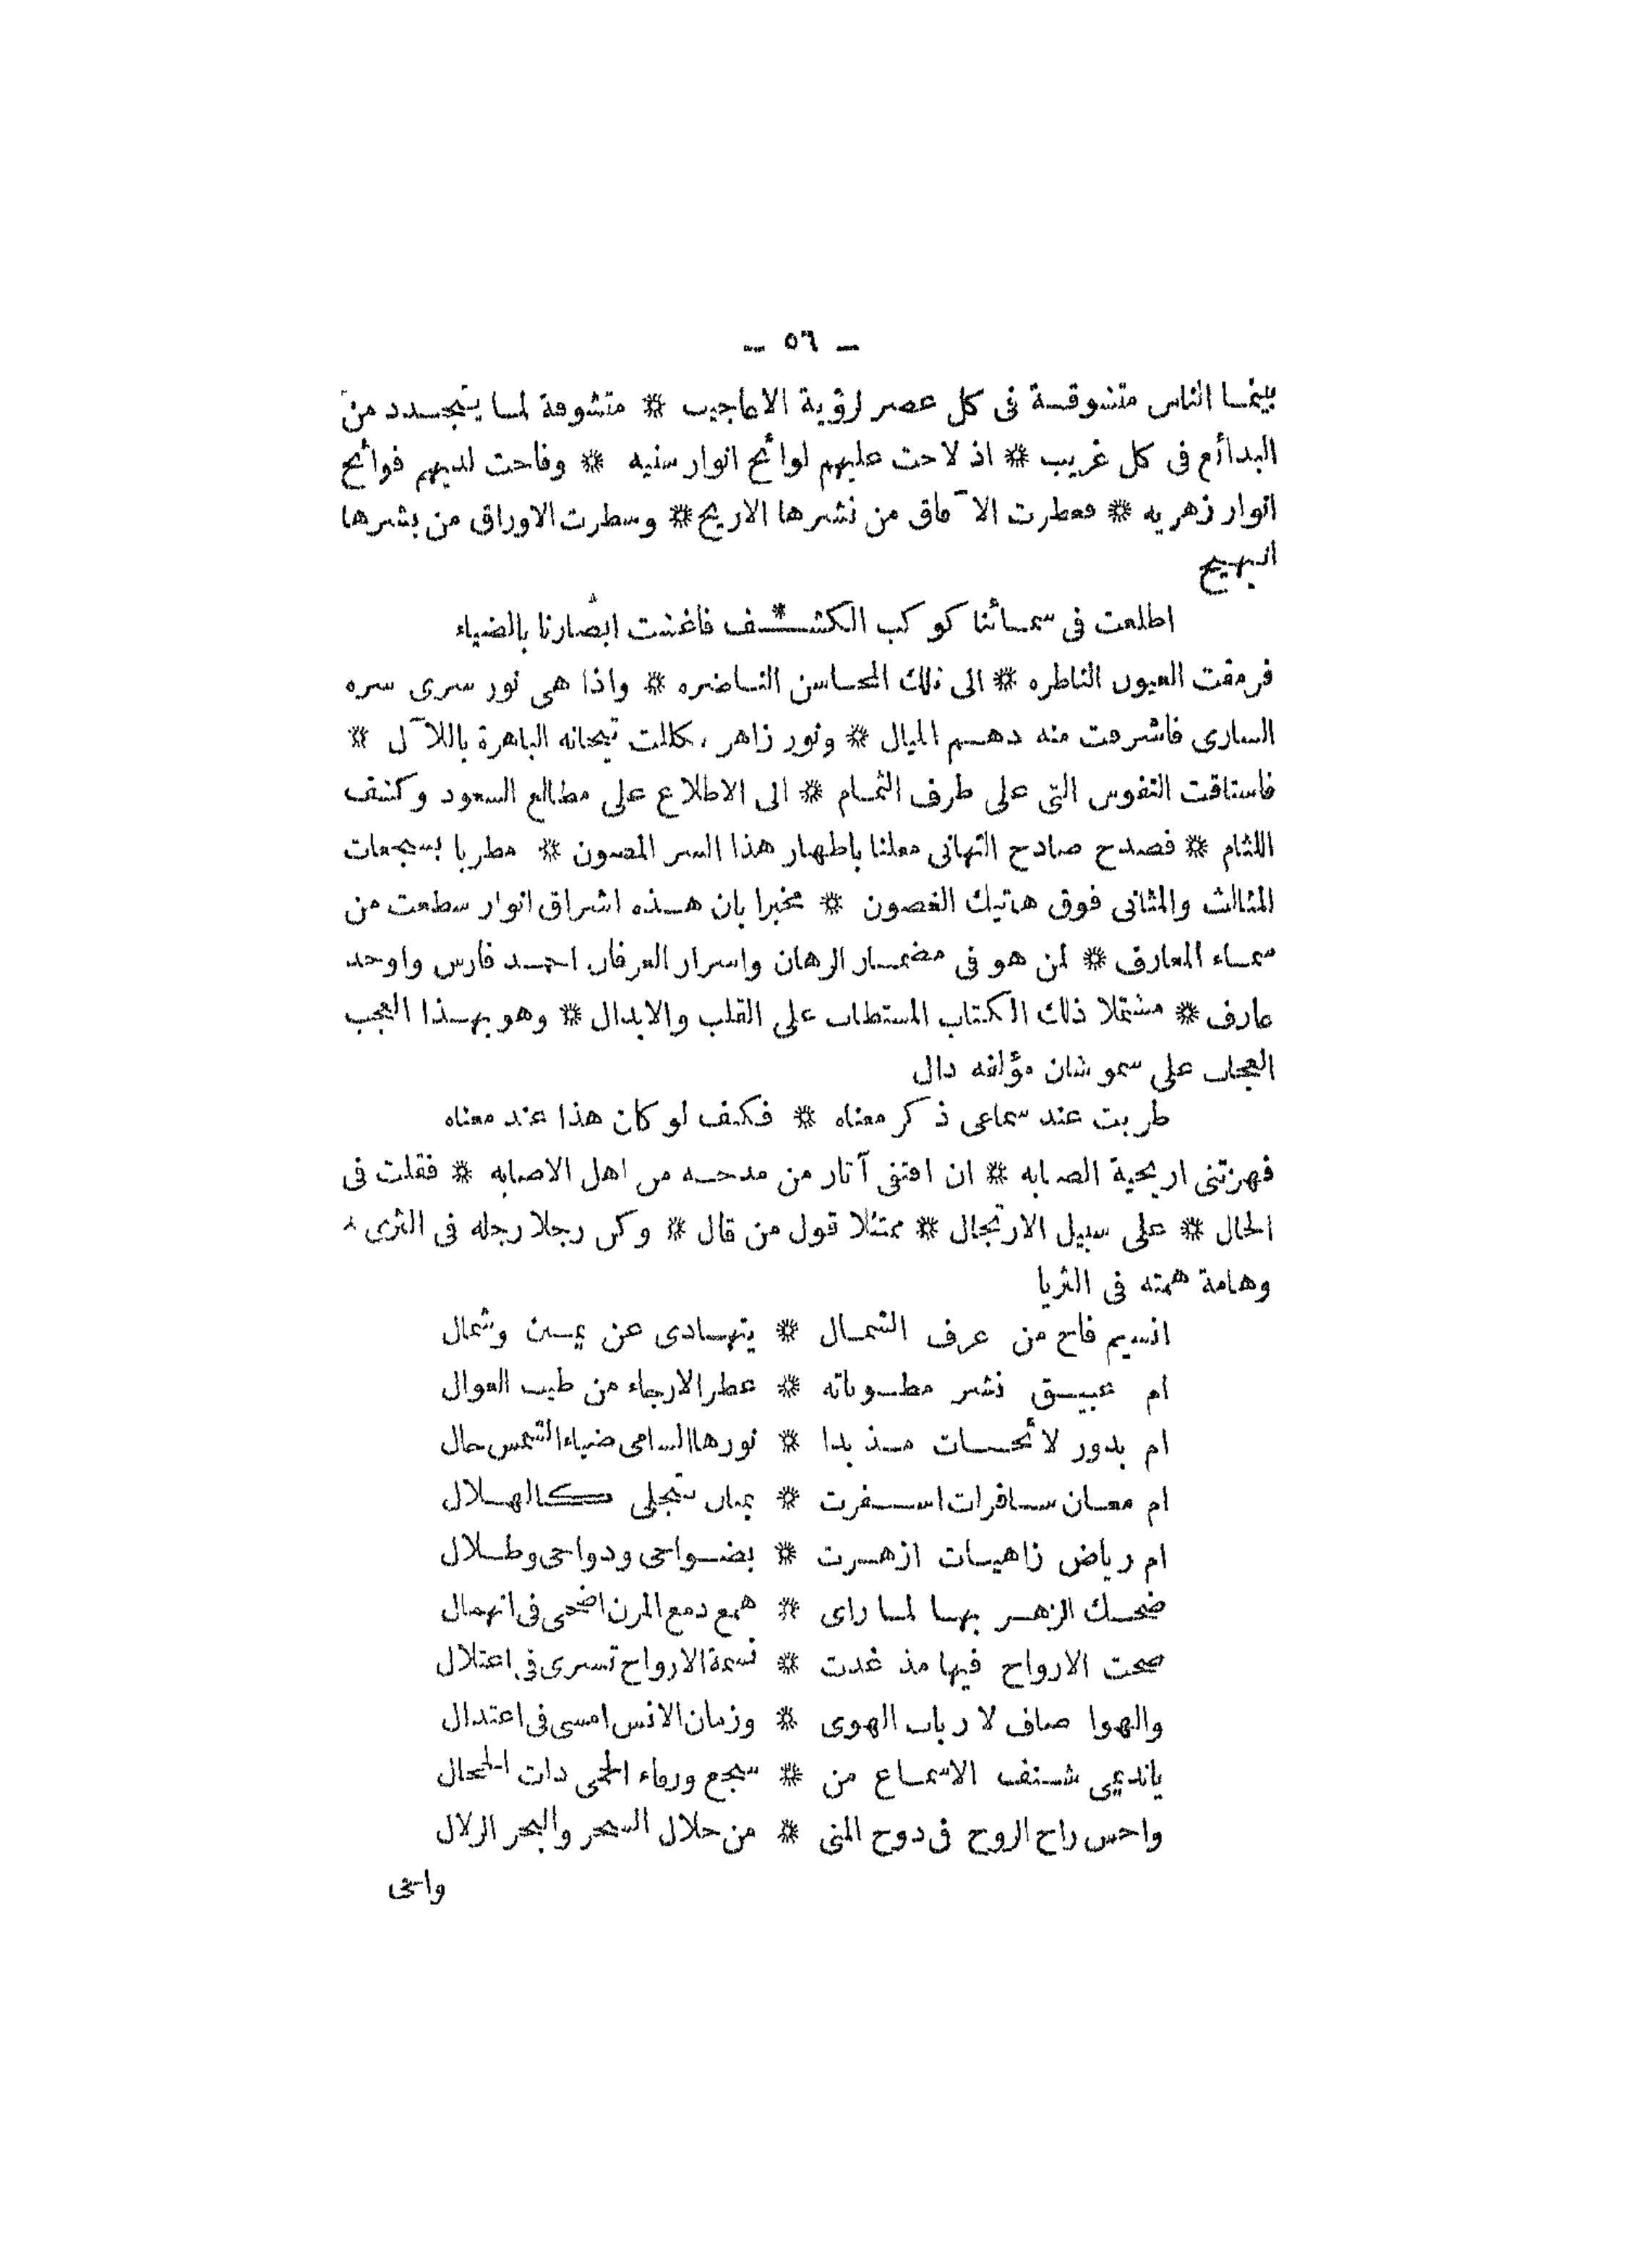 ـ ٥٦ ـ
بينما الناس متشوقة فى كل عصر لرؤية الاعاجيب * متشوفة لما يتجدد من
البدائع فى كل غريب * اذ لاحت عليهم لوائح انوار سنيه * وفاحت لديهم فوائح
انوار زهريه * فعطرت الآفاق من نشرها الاريج * وسطرت الاوراق من بشرها
البهيج
اطلعت فى سمائنا كوكب الكشـ*ـف فاغنت ابصارنا بالضياء
فرمقت العيون الناظره * الى تلك المحاسن الناضره * واذا هى نور سرى سره
السارى فاشرقت منه دهم الليال * ونور زاهر كللت تيجانه الباهرة باللآل *
فاستاقت النفوس التى على طرف الثمام * الى الاطلاع على مطالع السعود وكشف
اللثام * فصدح صادح التهانى معلنا باظهار هذا السر المصون * مطربا بسجعات
المثالث والمثانى فوق هاتيك الغصون * مخبرا بان هذه اشراق انوار سطعت من
سماء المعارف * لمن هو فى مضمار الرهان واسرار العرفان احمد فارس واوحد
عارف * مشتملا ذلك الكتاب المستطاب على القلب والابدال * وهو بهذا العجب
العجاب على سمو شان مؤلفه دال
طربت عند سماعى ذكر معناه * فكيف لو كان هذا عند معناه
فهزتنى اريحية الصبابه * ان اقتفى آثار من مدحه من اهل الاصابه * فقلت فى
الحال * على سبيل الارتجال * ممتثلا قول من قال * وكن رجلا رجله فى الثرى *
وهامة همته فى الثريا
انسيم فاح من عرف الشمال * يتهادى عن يمين وشمال
ام عبيق نشر مطوياته * عطر الارجاء من طيب الغوال
ام بدور لائحات مذ بدا * نورها السامى ضياء الشمس حال
ام معان سافرات اسفرت * ببيان تنجلى كالهلال
ام رياض زاهيات ازهرت * بضواحى ودواحى وظلال
ضحك الزهر بها لما راى * همع دمع المزن اضحى فى انهمال
صحت الارواح فيها مذ غدت * نسمة الارواح تسرى فى اعتلال
والهوا صاف لارباب الهوى * وزمان الانس امسى فى اعتدال
يانديمى شنف الاسماع من * سجع ورقاء الحمى ذات الحجال
واحس راح الروح فى دوح المنى * من حلال السحر والبحر الزلال
وانحى